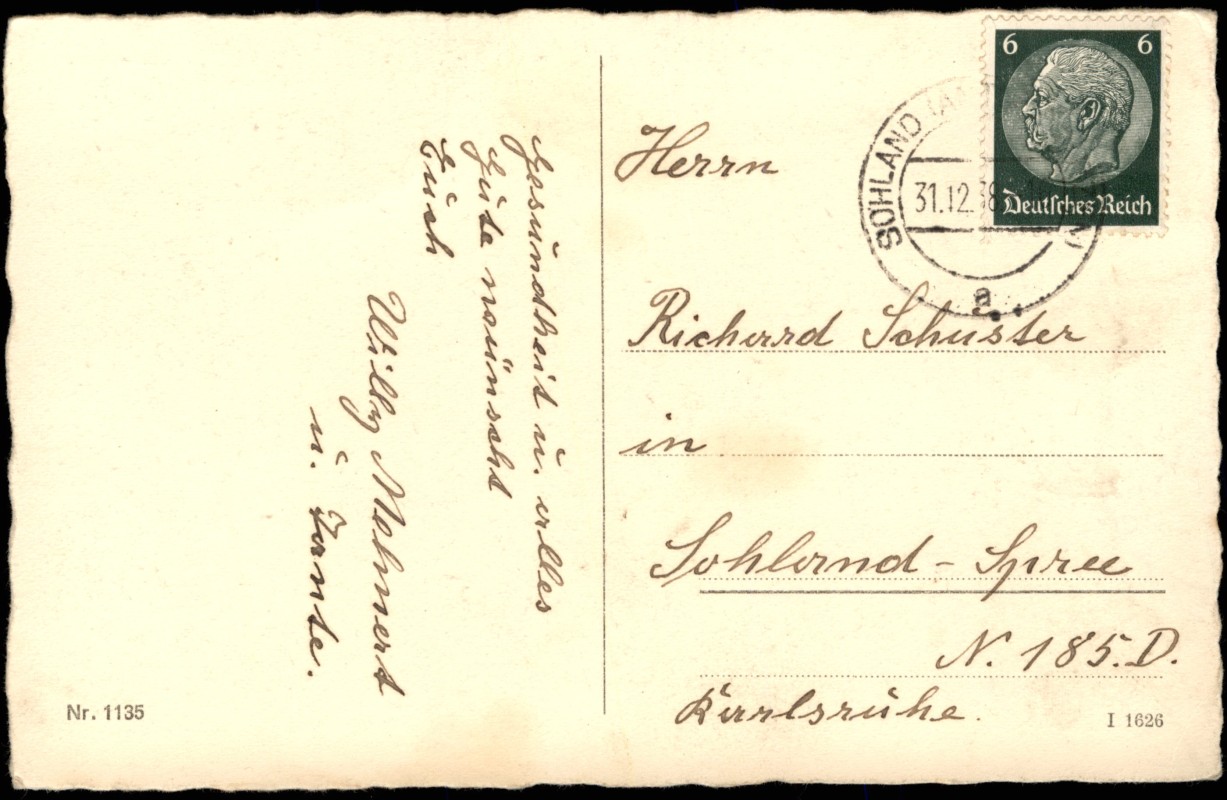 Gesundheit u. alles
Gute wünscht
Euch
Willy Mehnert
u. Tante.
Nr. 1135
6 6
Deutsches Reich
SOHLAND
31.12.38
a
Herrn
Richard Schuster
in
Sohland - Spree
N. 185.D.
Karlsruhe.
I 1626